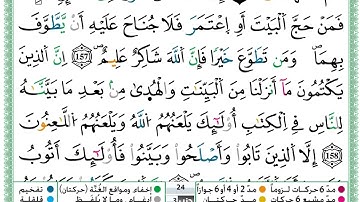 فَمَنْ حَجَّ ٱلْبَيْتَ أَوِ ٱعْتَمَرَ فَلَا جُنَاحَ عَلَيْهِ أَن يَطَّوَّفَ
بِهِمَا ۚ وَمَن تَطَوَّعَ خَيْرًا فَإِنَّ ٱللَّهَ شَاكِرٌ عَلِيمٌ ۝١٥٧ إِنَّ ٱلَّذِينَ
يَكْتُمُونَ مَآ أَنزَلْنَا مِنَ ٱلْبَيِّنَٰتِ وَٱلْهُدَىٰ مِنۢ بَعْدِ مَا بَيَّنَّٰهُ
لِلنَّاسِ فِى ٱلْكِتَٰبِ أُو۟لَٰٓئِكَ يَلْعَنُهُمُ ٱللَّهُ وَيَلْعَنُهُمُ ٱللَّٰعِنُونَ
۝١٥٨ إِلَّا ٱلَّذِينَ تَابُوا۟ وَأَصْلَحُوا۟ وَبَيَّنُوا۟ فَأُو۟لَٰٓئِكَ أَتُوبُ
مدّ ٦ حركات لزوماً مدّ ٢ أو ٤ أو ٦ جوازاً 24 إخفاء ومواقع الغُنَّة (حركتان) تفخيم
مدّ مشبع ٦ حركات مدّ حركتان إدغام ، وما لا يُلفَظ قلقلة